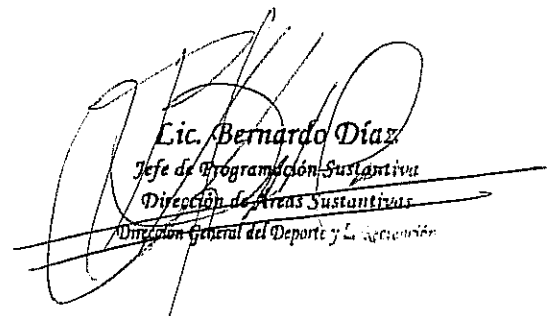 Lic. Bernardo Díaz
Jefe de Programación Sustantiva
Dirección de Areas Sustantivas
Dirección General del Deporte y La Recreación